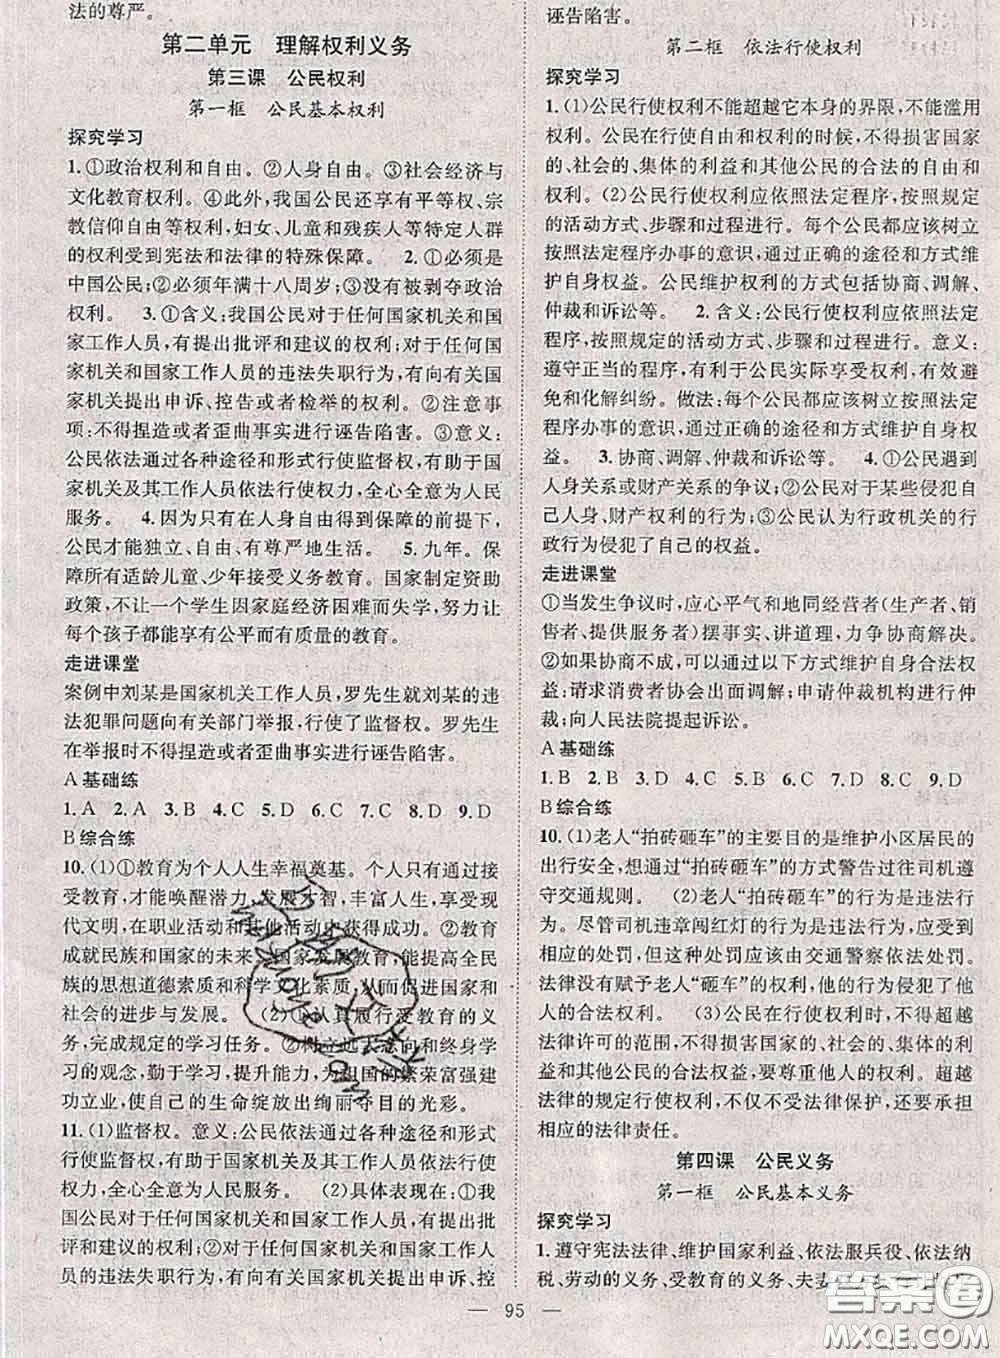 法的尊严。
第二单元　理解权利义务
第三课　公民权利
第一框　公民基本权利
探究学习
1.①政治权利和自由。②人身自由。③社会经济与
文化教育权利。④此外,我国公民还享有平等权、宗
教信仰自由等权利,妇女、儿童和残疾人等特定人群
的权利受到宪法和法律的特殊保障。　2.①必须是
中国公民;②必须年满十八周岁;③没有被剥夺政治
权利。　3.①含义:我国公民对于任何国家机关和国
家工作人员,有提出批评和建议的权利;对于任何国
家机关和国家工作人员的违法失职行为,有向有关国
家机关提出申诉、控告或者检举的权利。②注意事
项:不得捏造或者歪曲事实进行诬告陷害。③意义:
公民依法通过各种途径和形式行使监督权,有助于国
家机关及其工作人员依法行使权力,全心全意为人民
服务。　4.因为只有在人身自由得到保障的前提下,
公民才能独立、自由、有尊严地生活。　5.九年。保
障所有适龄儿童、少年接受义务教育。国家制定资助
政策,不让一个学生因家庭经济困难而失学,努力让
每个孩子都能享有公平而有质量的教育。
走进课堂
案例中刘某是国家机关工作人员,罗先生就刘某的违
法犯罪问题向有关部门举报,行使了监督权。罗先生
在举报时不得捏造或者歪曲事实进行诬告陷害。
A 基础练
1.A　2.A　3.B　4.C　5.D　6.C　7.C　8.D　9.D
B 综合练
10.(1)①教育为个人人生幸福奠基。个人只有通过接
受教育,才能唤醒潜力、发展才智,丰富人生,享受
现代文明,在职业活动和其他活动中获得成功。②教育
成就民族和国家的未来。国家发展教育,能提高全民
族的思想道德素质和科学文化素质,从而促进国家和
社会的进步与发展。　(2)①认真履行受教育的义
务,完成规定的学习任务。②树立远大志向和终身学习
的观念,勤于学习,提升能力,为祖国的繁荣富强建
功立业,使自己的生命绽放出绚丽夺目的光彩。
11.(1)监督权。意义:公民依法通过各种途径和形式
行使监督权,有助于国家机关及其工作人员依法行使
权力,全心全意为人民服务。　(2)具体表现在:①我
国公民对于任何国家机关和国家工作人员,有提出批
评和建议的权利;②对于任何国家机关和国家工作人
员的违法失职行为,有向有关国家机关提出申诉、控
诬告陷害。
第二框　依法行使权利
探究学习
1.(1)公民行使权利不能超越它本身的界限,不能滥用
权利。公民在行使自由和权利的时候,不得损害国家
的、社会的、集体的利益和其他公民的合法的自由和
权利。(2)公民行使权利应依照法定程序,按照规定
的活动方式、步骤和过程进行。每个公民都应该树立
按照法定程序办事的意识,通过正确的途径和方式维
护自身权益。公民维护权利的方式包括协商、调解、
仲裁和诉讼等。　2.含义:公民行使权利应依照法定
程序,按照规定的活动方式、步骤和过程进行。意义:
遵守正当的程序,有利于公民实际享受权利,有效避
免和化解纠纷。做法:每个公民都应该树立按照法定
程序办事的意识,通过正确的途径和方式维护自身权
益。　3.协商、调解、仲裁和诉讼等。　4.①公民遇到
人身关系或财产关系的争议;②公民对于某些侵犯自
己人身、财产权利的行为;③公民认为行政机关的行
政行为侵犯了自己的权益。
走进课堂
①当发生争议时,应心平气和地同经营者(生产者、销
售者、提供服务者)摆事实、讲道理,力争协商解决。
②如果协商不成,可以通过以下方式维护自身合法权
益:请求消费者协会出面调解;申请仲裁机构进行仲
裁;向人民法院提起诉讼。
A 基础练
1.B　2.B　3.B　4.C　5.D　6.C　7.D　8.C　9.D
B 综合练
10.(1)老人“拍砖砸车”的主要目的是维护小区居民的
出行安全,想通过“拍砖砸车”的方式警告过往司机遵
守交通规则。　(2)老人“拍砖砸车”的行为是违法行
为。尽管司机违章闯红灯的行为是违法行为,应受到
相应的处罚,但这种处罚应该由交通警察依法处罚。
法律没有赋予老人“砸车”的权利,他的行为侵犯了他
人的合法权利。　(3)公民在行使权利时,不能超越
法律许可的范围,不得损害国家的、社会的、集体的利
益和其他公民的合法权益,要尊重他人的权利。超越
法律的规定行使权利,不仅不受法律保护,还要承担
相应的法律责任。
第四课　公民义务
第一框　公民基本义务
探究学习
1.遵守宪法法律、维护国家利益、依法服兵役、依法纳
税、劳动的义务、受教育的义务、夫妻
— 95 —
答案圈
MXQE.COM